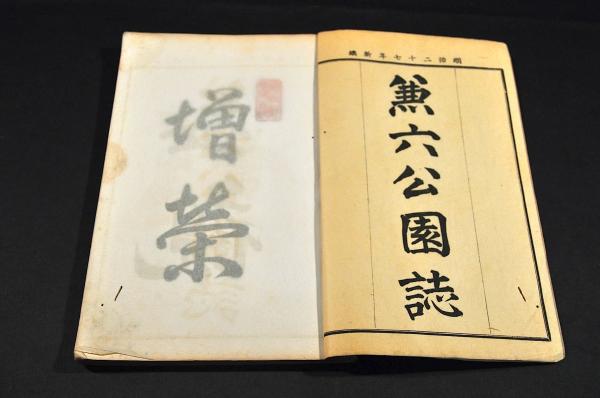 明治二十七年新鐫
兼六公園誌
增榮